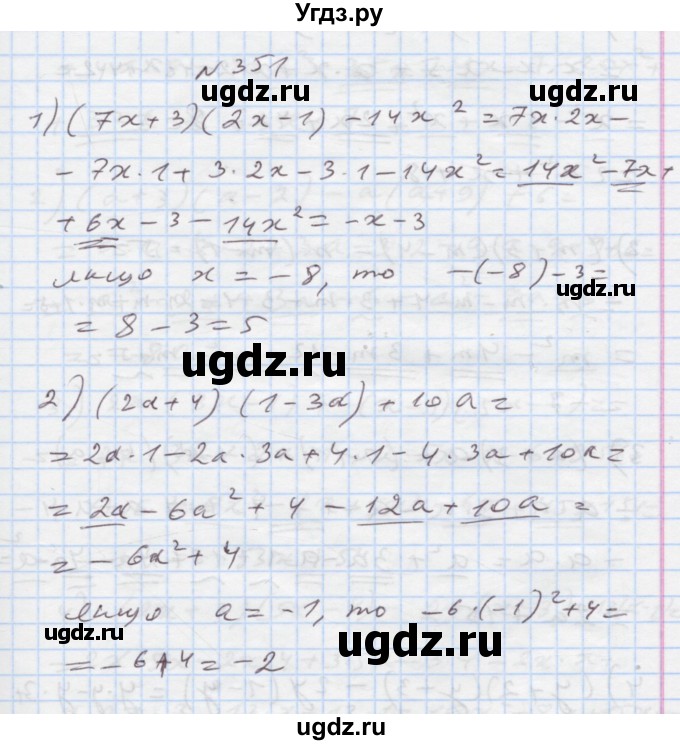 Угдз.ру
№ 351
ugdz.ru ugdz.ru
1) (7x+3)(2x-1) - 14x² = 7x·2x -
- 7x·1 + 3·2x - 3·1 - 14x² = 14x² - 7x +
+ 6x - 3 - 14x² = -x - 3
якщо x = -8, то -(-8) - 3 =
ugdz.ru
= 8 - 3 = 5
ugdz.ru ugdz.ru
2) (2a+4) (1-3a) + 10a =
= 2a·1 - 2a·3a + 4·1 - 4·3a + 10a =
= 2a - 6a² + 4 - 12a + 10a =
= -6a² + 4
ugdz.ru
якщо a = -1, то -6·(-1)² + 4 =
ugdz.ru ugdz.ru
= -6 + 4 = -2
ugdz.ru